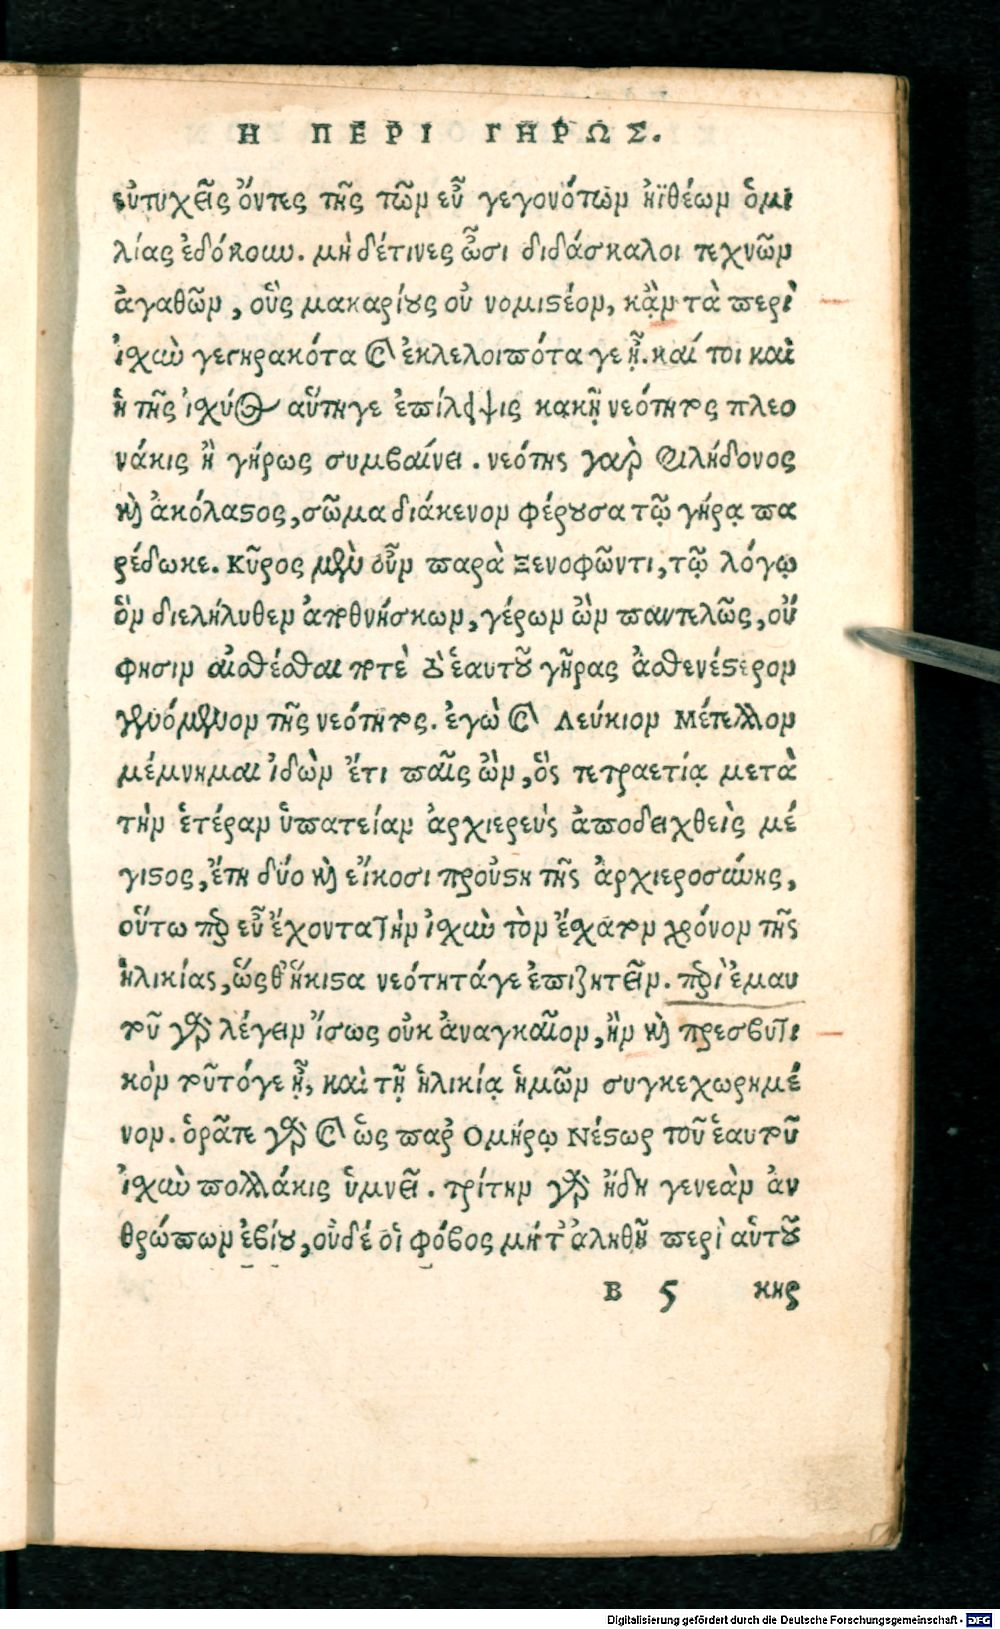 Η ΠΕΡΙ ΓΗΡΩΣ.
εὐτυχεῖς ὄντες τῆς τῶν εὖ γεγονότων ἠϊθέων ὁμι
λίας ἐδόκουν. μὴ δέ τινες ὦσι διδάσκαλοι τεχνῶν
ἀγαθῶν, οὓς μακαρίους οὐ νομιστέον, κᾂν τὰ περὶ
ἰσχὺν γεγηρακότα καὶ ἐκλελοιπότα γε ᾖ. καί τοι καὶ
ἡ τῆς ἰσχύος αὕτη γε ἐπίλειψις κακῇ νεότητος πλεο
νάκις ἢ γήρως συμβαίνει. νεότης γὰρ φιλήδονος
καὶ ἀκόλαστος, σῶμα διάκενον φέρουσα τῷ γήρᾳ πα
ρέδωκε. Κῦρος μὲν οὖν παρὰ Ξενοφῶντι, τῷ λόγῳ
ὃν διελήλυθεν ἀποθνήσκων, γέρων ὢν παντελῶς, οὔ
φησιν αἰσθέσθαι ποτὲ τοῦ ἑαυτοῦ γῆρας ἀσθενέστερον
γενόμενον τῆς νεότητος. ἐγὼ καὶ Λεύκιον Μέτελλον
μέμνημαι ἰδὼν ἔτι παῖς ὢν, ὃς τετραετίᾳ μετὰ
τὴν ἑτέραν ὑπατείαν ἀρχιερεὺς ἀποδειχθεὶς μέ
γιστος, ἔτη δύο καὶ εἴκοσι προὔστη τῆς ἀρχιεροσύνης,
οὕτω περ εὖ ἔχοντα τὴν ἰσχὺν τὸν ἔσχατον χρόνον τῆς
ἡλικίας, ὥσθ' ἥκιστα νεότητά γε ἐπιζητεῖν. περὶ ἐμαυ
τοῦ γὰρ λέγειν ἴσως οὐκ ἀναγκαῖον, ἢν καὶ πρεσβυτι
κὸν τοῦτό γε ᾖ, καὶ τῇ ἡλικίᾳ ἡμῶν συγκεχωρημέ
νον. ὁρᾶτε γὰρ καὶ ὡς παρ' Ομήρῳ Νέστωρ τοῦ ἑαυτοῦ
ἰσχὺν πολλάκις ὑμνεῖ. τρίτην γὰρ ἤδη γενεὰν ἀν
θρώπων ἐβίου, οὐδέ οἱ φόβος μή τ' ἀληθῆ περὶ αὑτοῦ
Β 5 κηρ
Digitalisierung gefördert durch die Deutsche Forschungsgemeinschaft - DFG